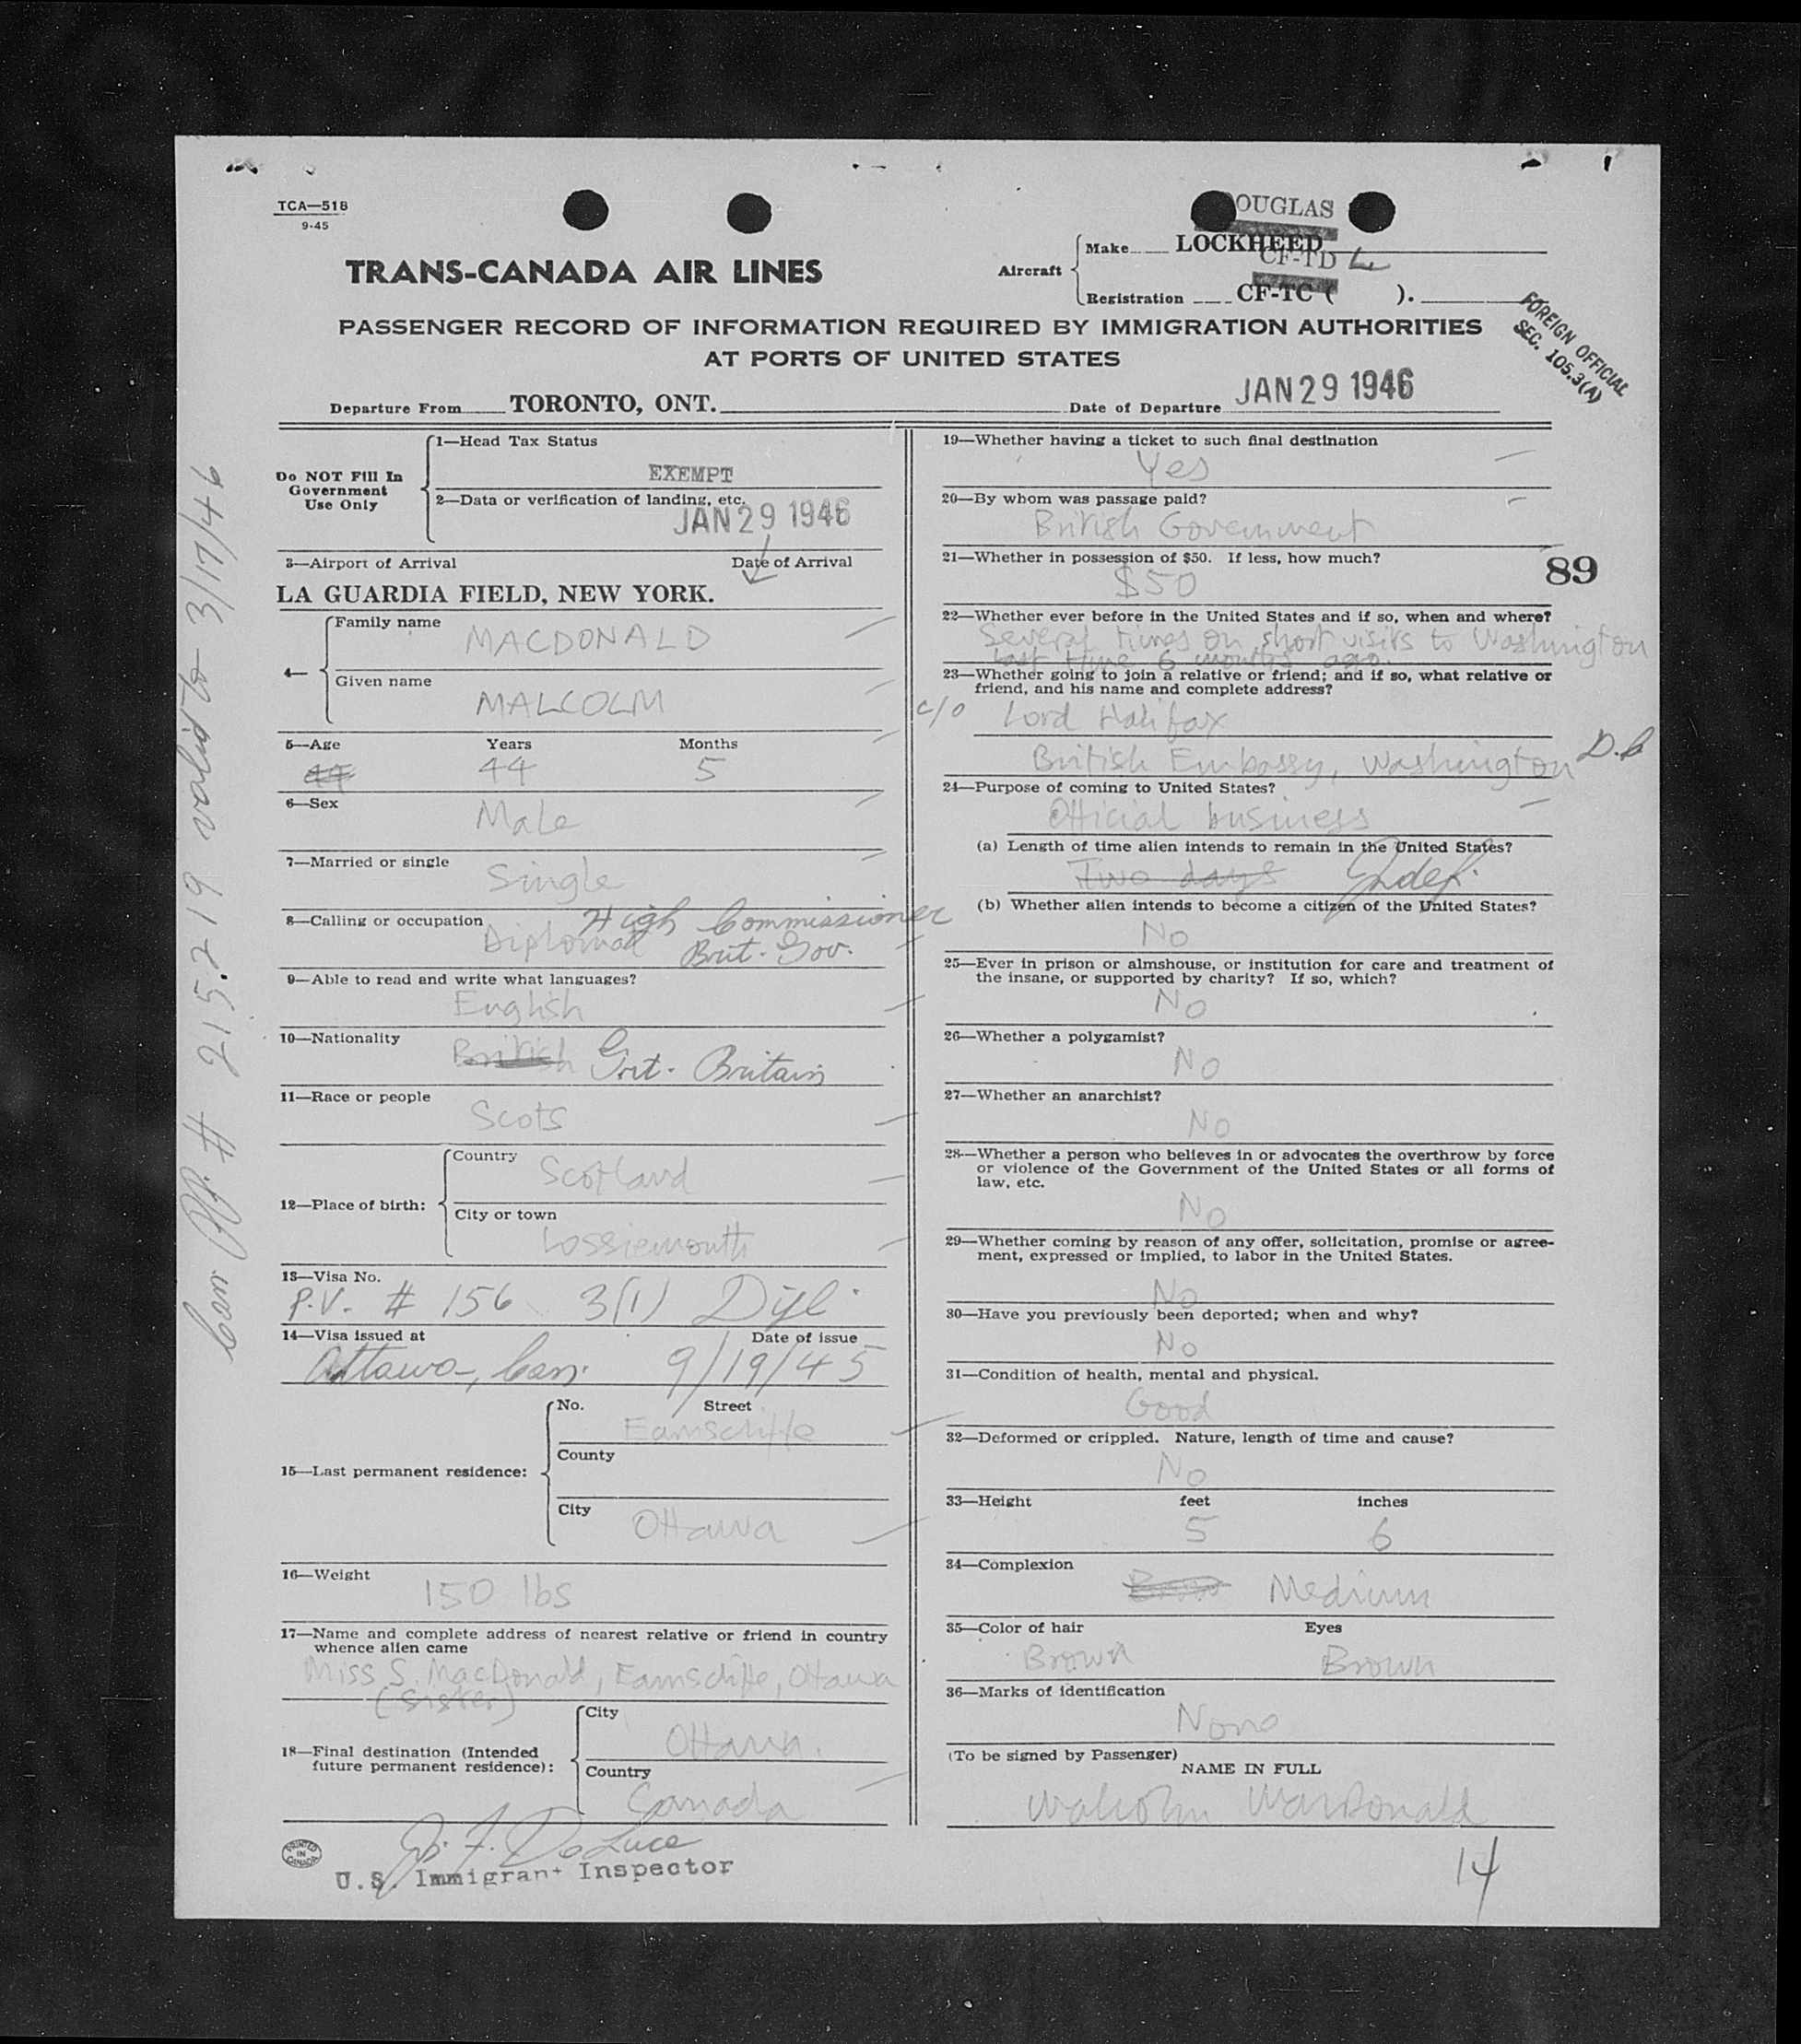 TCA—518
9-45
DOUGLAS
TRANS-CANADA AIR LINES
Aircraft
Make LOCKHEED
CF-TD L
Registration CF-TC ( ).
FOREIGN OFFICIAL
SEC. 105.3(A)
PASSENGER RECORD OF INFORMATION REQUIRED BY IMMIGRATION AUTHORITIES
AT PORTS OF UNITED STATES
Departure From TORONTO, ONT. Date of Departure JAN 29 1946
Can Off. # 215219 valid to 3/17/46
Do NOT Fill In
Government
Use Only
1—Head Tax Status
EXEMPT
2—Data or verification of landing, etc.
JAN 29 1946
3—Airport of Arrival Date of Arrival
LA GUARDIA FIELD, NEW YORK.
4—
Family name
MACDONALD
Given name
MALCOLM
5—Age Years Months
44 44 5
6—Sex
Male
7—Married or single
Single
8—Calling or occupation
Diplomat High Commissioner
Brit. Gov.
9—Able to read and write what languages?
English
10—Nationality
British Grt. Britain
11—Race or people
Scots
12—Place of birth:
Country
Scotland
City or town
Lossiemouth
13—Visa No.
P.V. # 156 3(1) Dipl.
14—Visa issued at Date of issue
Ottawa, Can. 9/19/45
15—Last permanent residence:
No. Street
Earnscliffe
County
City
Ottawa
16—Weight
150 lbs
17—Name and complete address of nearest relative or friend in country
whence alien came
Miss S. MacDonald, Earnscliffe, Ottawa
(sister)
18—Final destination (Intended
future permanent residence):
City
Ottawa.
Country
Canada
J. F. DeLuce
U.S. Immigrant Inspector
PRINTED
IN
CANADA
19—Whether having a ticket to such final destination
Yes
20—By whom was passage paid?
British Government
21—Whether in possession of $50. If less, how much?
$50
89
22—Whether ever before in the United States and if so, when and where?
Several times on short visits to Washington
last time 6 months ago.
23—Whether going to join a relative or friend; and if so, what relative or
friend, and his name and complete address?
c/o Lord Halifax
British Embassy, Washington D.C
24—Purpose of coming to United States?
Official business
(a) Length of time alien intends to remain in the United States?
Two days Indef.
(b) Whether alien intends to become a citizen of the United States?
No
25—Ever in prison or almshouse, or institution for care and treatment of
the insane, or supported by charity? If so, which?
No
26—Whether a polygamist?
No
27—Whether an anarchist?
No
28—Whether a person who believes in or advocates the overthrow by force
or violence of the Government of the United States or all forms of
law, etc.
No
29—Whether coming by reason of any offer, solicitation, promise or agree-
ment, expressed or implied, to labor in the United States.
No
30—Have you previously been deported; when and why?
No
31—Condition of health, mental and physical.
Good
32—Deformed or crippled. Nature, length of time and cause?
No
33—Height feet inches
5 6
34—Complexion
Medium
35—Color of hair Eyes
Brown Brown
36—Marks of identification
None
(To be signed by Passenger)
NAME IN FULL
Malcolm MacDonald
14